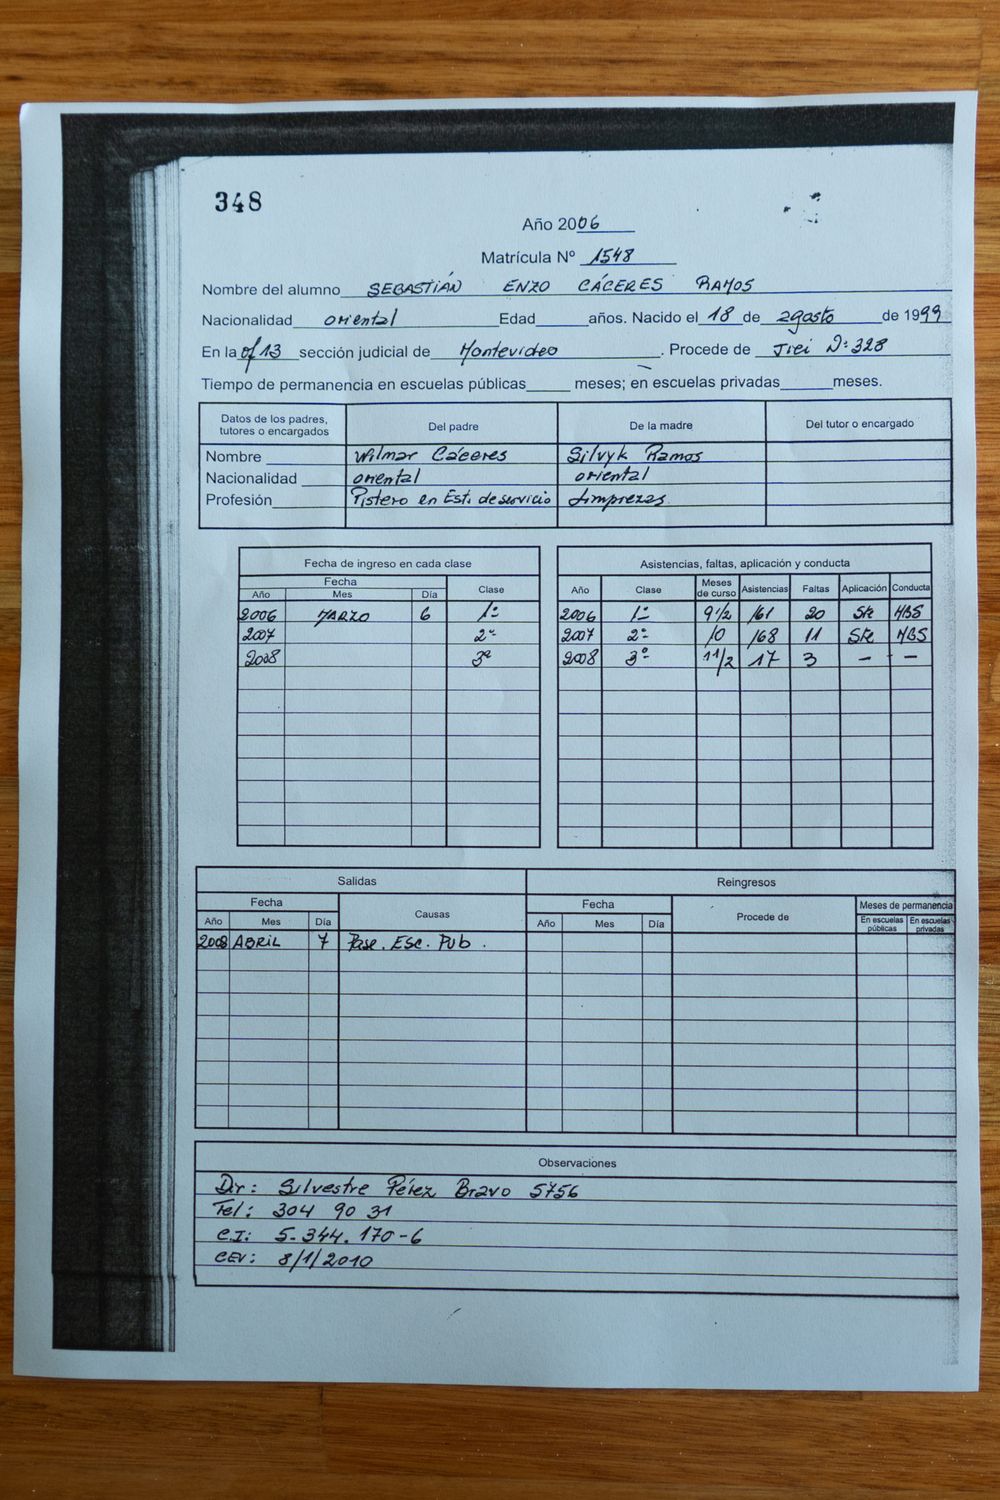 348
Año 2006
Matrícula Nº 1548
Nombre del alumno SEBASTIÁN ENZO CÁCERES RAMOS
Nacionalidad oriental Edad años. Nacido el 18 de agosto de 1999
En la of 13 sección judicial de Montevideo. Procede de Jrei Nº 328
Tiempo de permanencia en escuelas públicas meses; en escuelas privadas meses.
Datos de los padres, tutores o encargados Del padre De la madre Del tutor o encargado
Nombre Wilmar Cáceres Silvyk Ramos
Nacionalidad oriental oriental
Profesión Pistero en Est. de servicio Limpiezas
Fecha de ingreso en cada clase
Fecha Clase
Año Mes Día
2006 MARZO 6 1º
2007 2º
2008 3º
Asistencias, faltas, aplicación y conducta
Año Clase Meses de curso Asistencias Faltas Aplicación Conducta
2006 1º 9 1/2 161 20 Ste MBS
2007 2º 10 168 11 Ste MBS
2008 3º 1 1/2 17 3 - -
Salidas
Fecha Causas
Año Mes Día
2008 ABRIL 7 Pase. Esc. Pub.
Reingresos
Fecha Procede de Meses de permanencia
Año Mes Día En escuelas públicas En escuelas privadas
Observaciones
Dir: Silvestre Pérez Bravo 5756
Tel: 304 90 31
C.I: 5.344.170-6
CEV: 8/1/2010